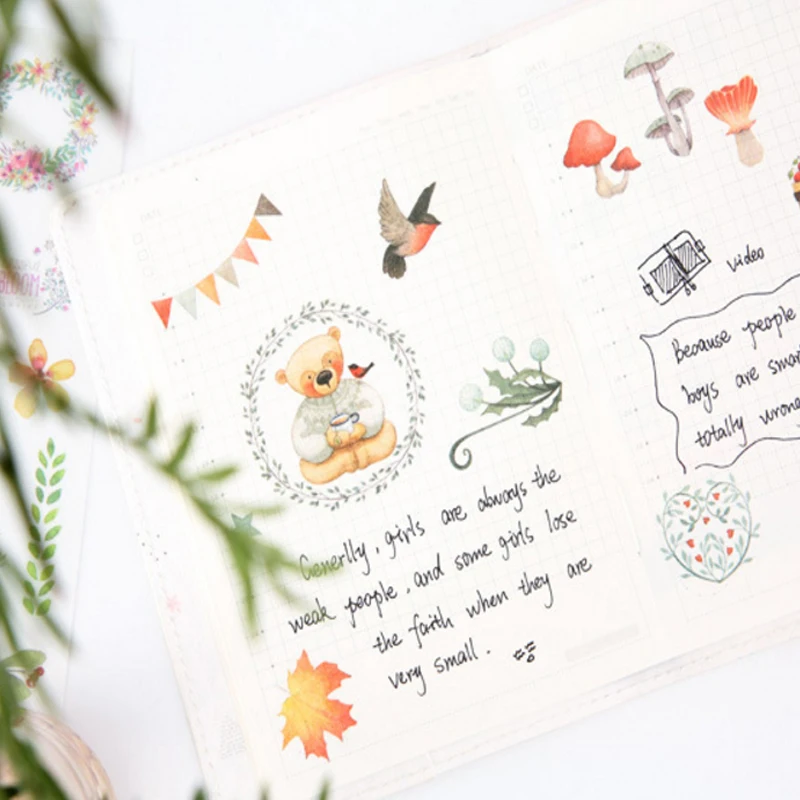 BLOOM
Generlly, girls are always the
weak people, and some girls lose
the faith when they are
very small.
video
Because people
boys are smar
totally wrong